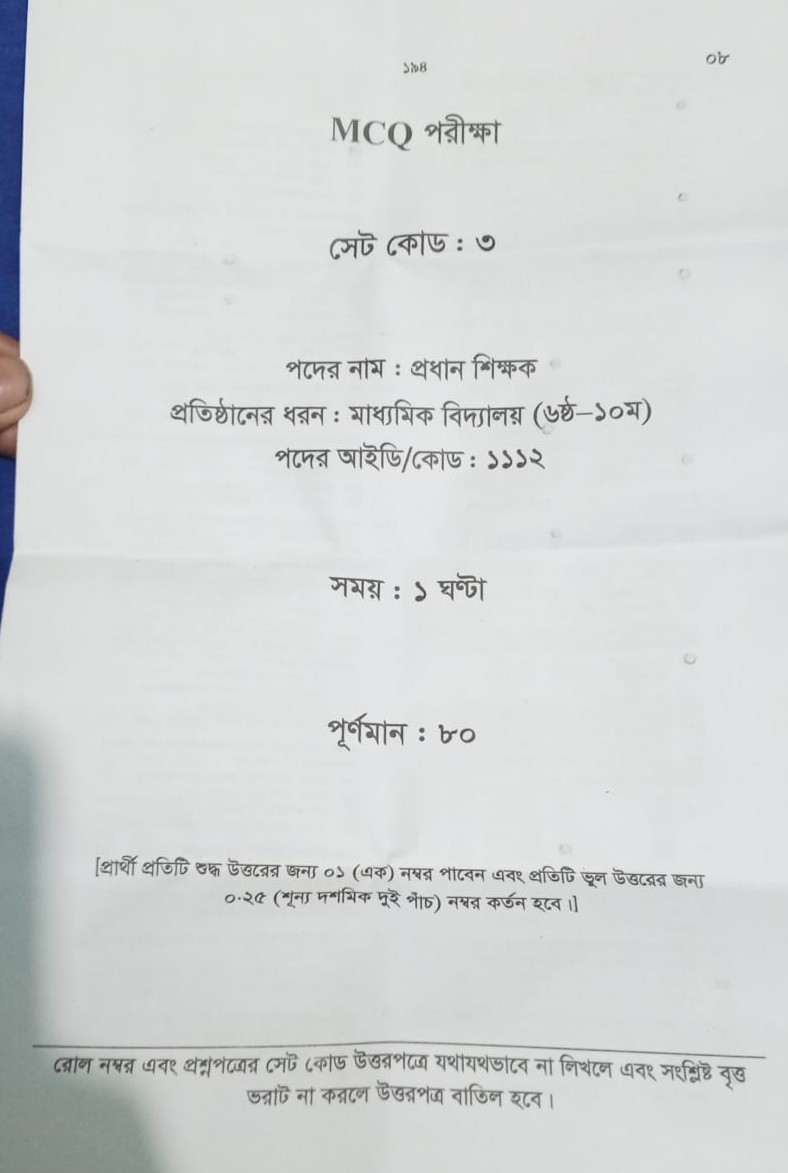 ১৯৪
০৮
MCQ পরীক্ষা
সেট কোড : ৩
পদের নাম : প্রধান শিক্ষক
প্রতিষ্ঠানের ধরন : মাধ্যমিক বিদ্যালয় (৬ষ্ঠ–১০ম)
পদের আইডি/কোড : ১১১২
সময় : ১ ঘণ্টা
পূর্ণমান : ৮০
[প্রার্থী প্রতিটি শুদ্ধ উত্তরের জন্য ০১ (এক) নম্বর পাবেন এবং প্রতিটি ভুল উত্তরের জন্য
০·২৫ (শূন্য দশমিক দুই পাঁচ) নম্বর কর্তন হবে।]
রোল নম্বর এবং প্রশ্নপত্রের সেট কোড উত্তরপত্রে যথাযথভাবে না লিখলে এবং সংশ্লিষ্ট বৃত্ত
ভরাট না করলে উত্তরপত্র বাতিল হবে।